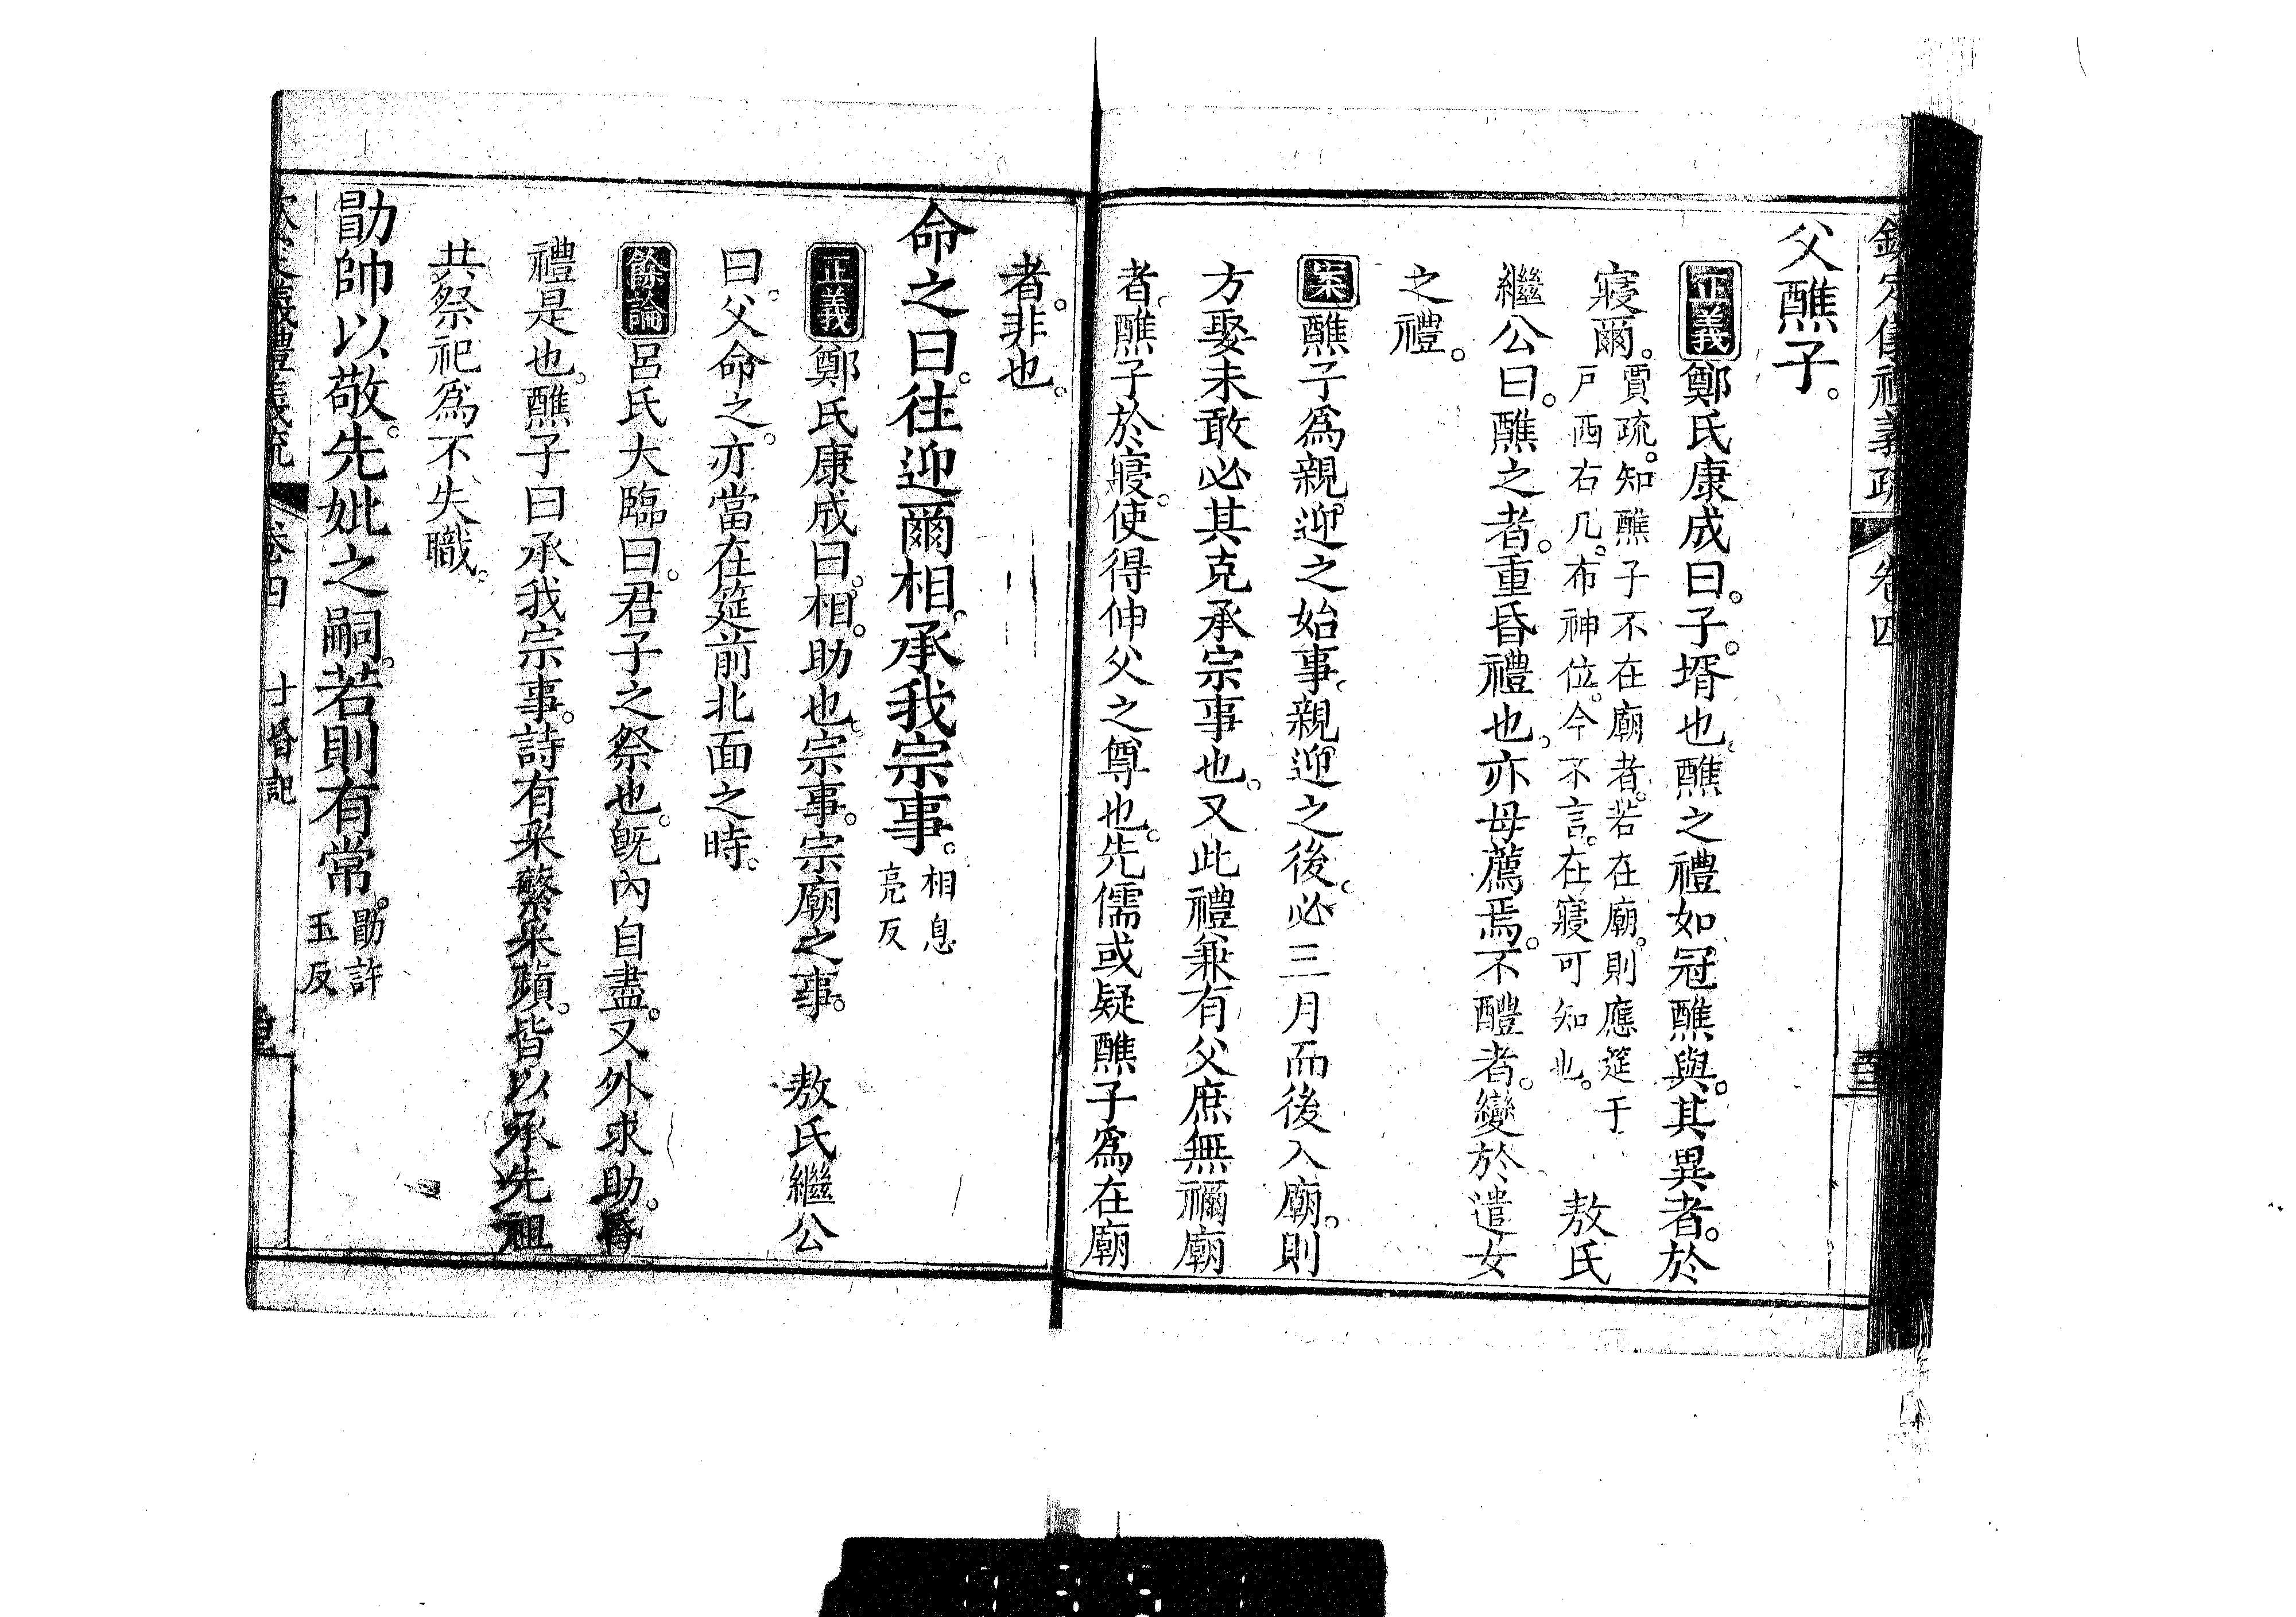 欽定儀禮義疏 卷四
父醮子。
正義鄭氏康成曰。子。壻也。醮之禮如冠醮與。其異者。於
寢爾。賈疏。知醮子不在廟者。若在廟。則應筵于戶西右几。布神位。今不言。在寢可知也。 敖氏
繼公曰。醮之者。重昏禮也。亦母薦焉。不醴者。變於遣女
之禮。
案醮子爲親迎之始事。親迎之後。必三月而後入廟。則
方娶未敢必其克承宗事也。又此禮兼有父庶無禰廟
者。醮子於寢。使得伸父之尊也。先儒或疑醮子爲在廟
者。非也。
命之曰。往迎爾相。承我宗事。相息亮反
正義鄭氏康成曰。相。助也。宗事。宗廟之事。 敖氏繼公
曰。父命之。亦當在筵前北面之時。
餘論呂氏大臨曰。君子之祭也。旣內自盡。又外求助。昏
禮是也。醮子曰承我宗事。詩有采蘩采蘋。皆以承先祖
共祭祀爲不失職。
勖帥以敬。先妣之嗣。若則有常。勖許玉反
欽定儀禮義疏 卷四 士昏記